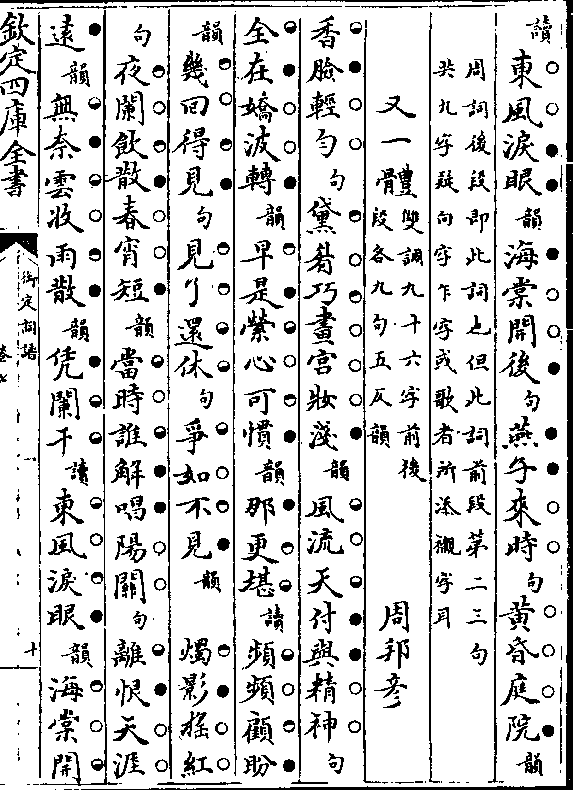 讀東風淚眼韻海棠開後句燕子來時句黃昏庭院韻
周詞後段即此詞也但此詞前段第二三句
共九字疑向字乍字或歌者所添襯字耳
又一體雙調九十六字前後段各九句五仄韻 周邦彥
香臉輕勻句黛眉巧畫宮妝淺韻風流天付與精神句
全在嬌波轉韻早是縈心可慣韻那更堪讀頻頻顧盼
韻幾回得見句見了還休句爭如不見韻 燭影搖紅
句夜闌飲散春宵短韻當時誰解唱陽關句離恨天涯
遠韻無奈雲收雨散韻凭闌干讀東風淚眼韻海棠開
欽定四庫全書
御定詞譜